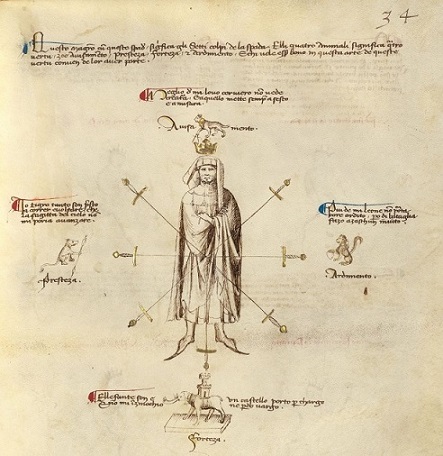 34
Questo magro significa gli Setti colpi de la spada. Elli quatro animali significa
vertu, zoe avisamento, Presteza, forteza, ardimento. chi vole esser bono in questa arte de queste
vertu conven de lor aver parte.
Meglio de mi lovo cervino no vede
creatura. Eaquello mette semp a sesto
e a misura.
Avisa mento.
Io tigro tanto son psto
a correr e voltare che
la sagitta del cielo no
mi poria avanzare.
Presteza.
Piu de mi leone no porta
core ardito, po di bataglia
fazo a zaschun invito.
Ardimento.
Ellefante son e un castello porto p chargo
E no mi inzinochio ne perdo vargo.
Forteza.